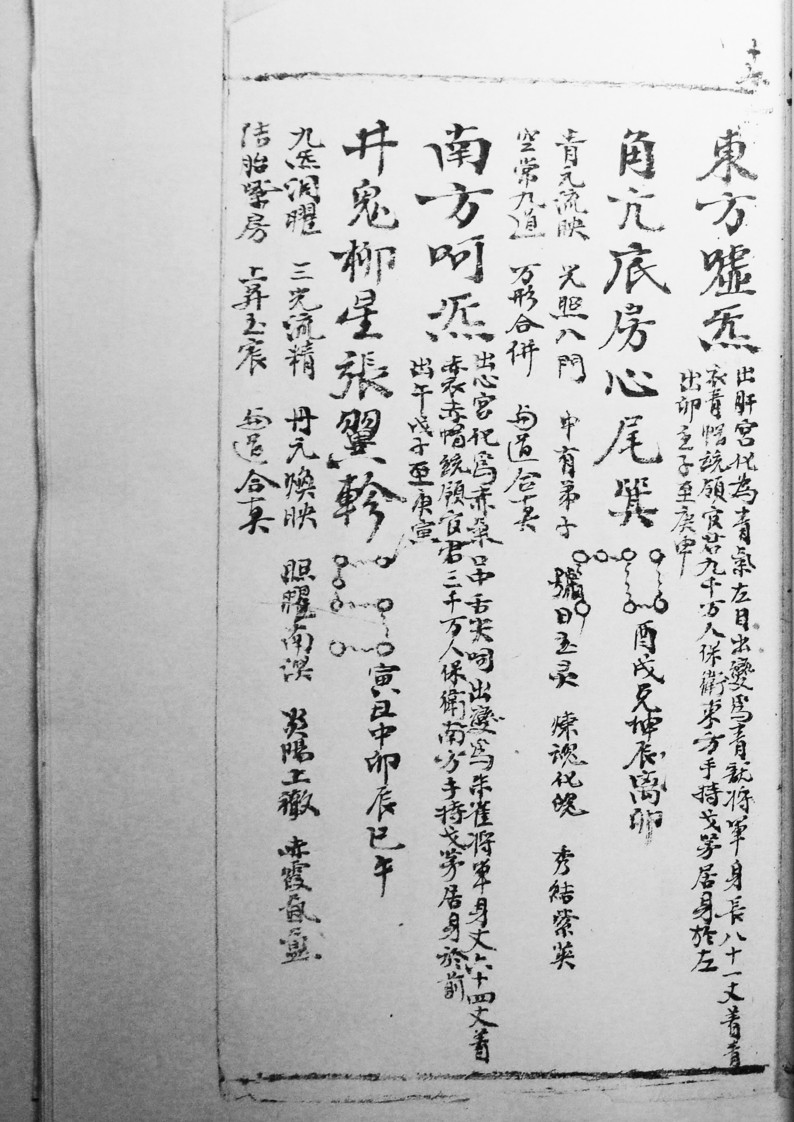 東方噓炁
出肝宮化為青氣左目出變爲青龍将軍身長八十一丈着青
衣青帽統領官君九千万人保衛東方手持戈茅居身於左
出卯至子至庚申
角亢底房心尾箕
酉戌兄坤辰离卯
青元流映 光照八門 中有弟子 號曰玉灵 煉魂化魄 秀結紫英
空常九道 万形合併 与道合真
南方呵炁
出心宮化爲赤氣口中舌尖呵出變爲朱雀将軍身丈六十四丈着
赤衣赤帽統領官君三千万人保衛南方手持戈茅居身於前
出午戊子至庚寅
井鬼柳星張翼軫
寅丑中卯辰巳午
九炁洞曜 三光流精 丹元煥映 照耀南溟 炎陽上徹 赤霞
结胎嬰房 上昇玉宸 与道合真